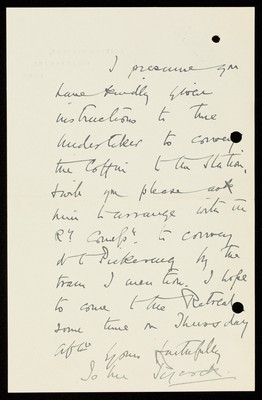 I presume you
have kindly given
instructions to the
Undertaker to convey
the Coffin to the Station,
will you please ask
him to arrange with the
Ry. Compy. to convey
it to Pickering by the
train I mention. I hope
to come to the Retreat
some time on Thursday
afto.
Yours faithfully